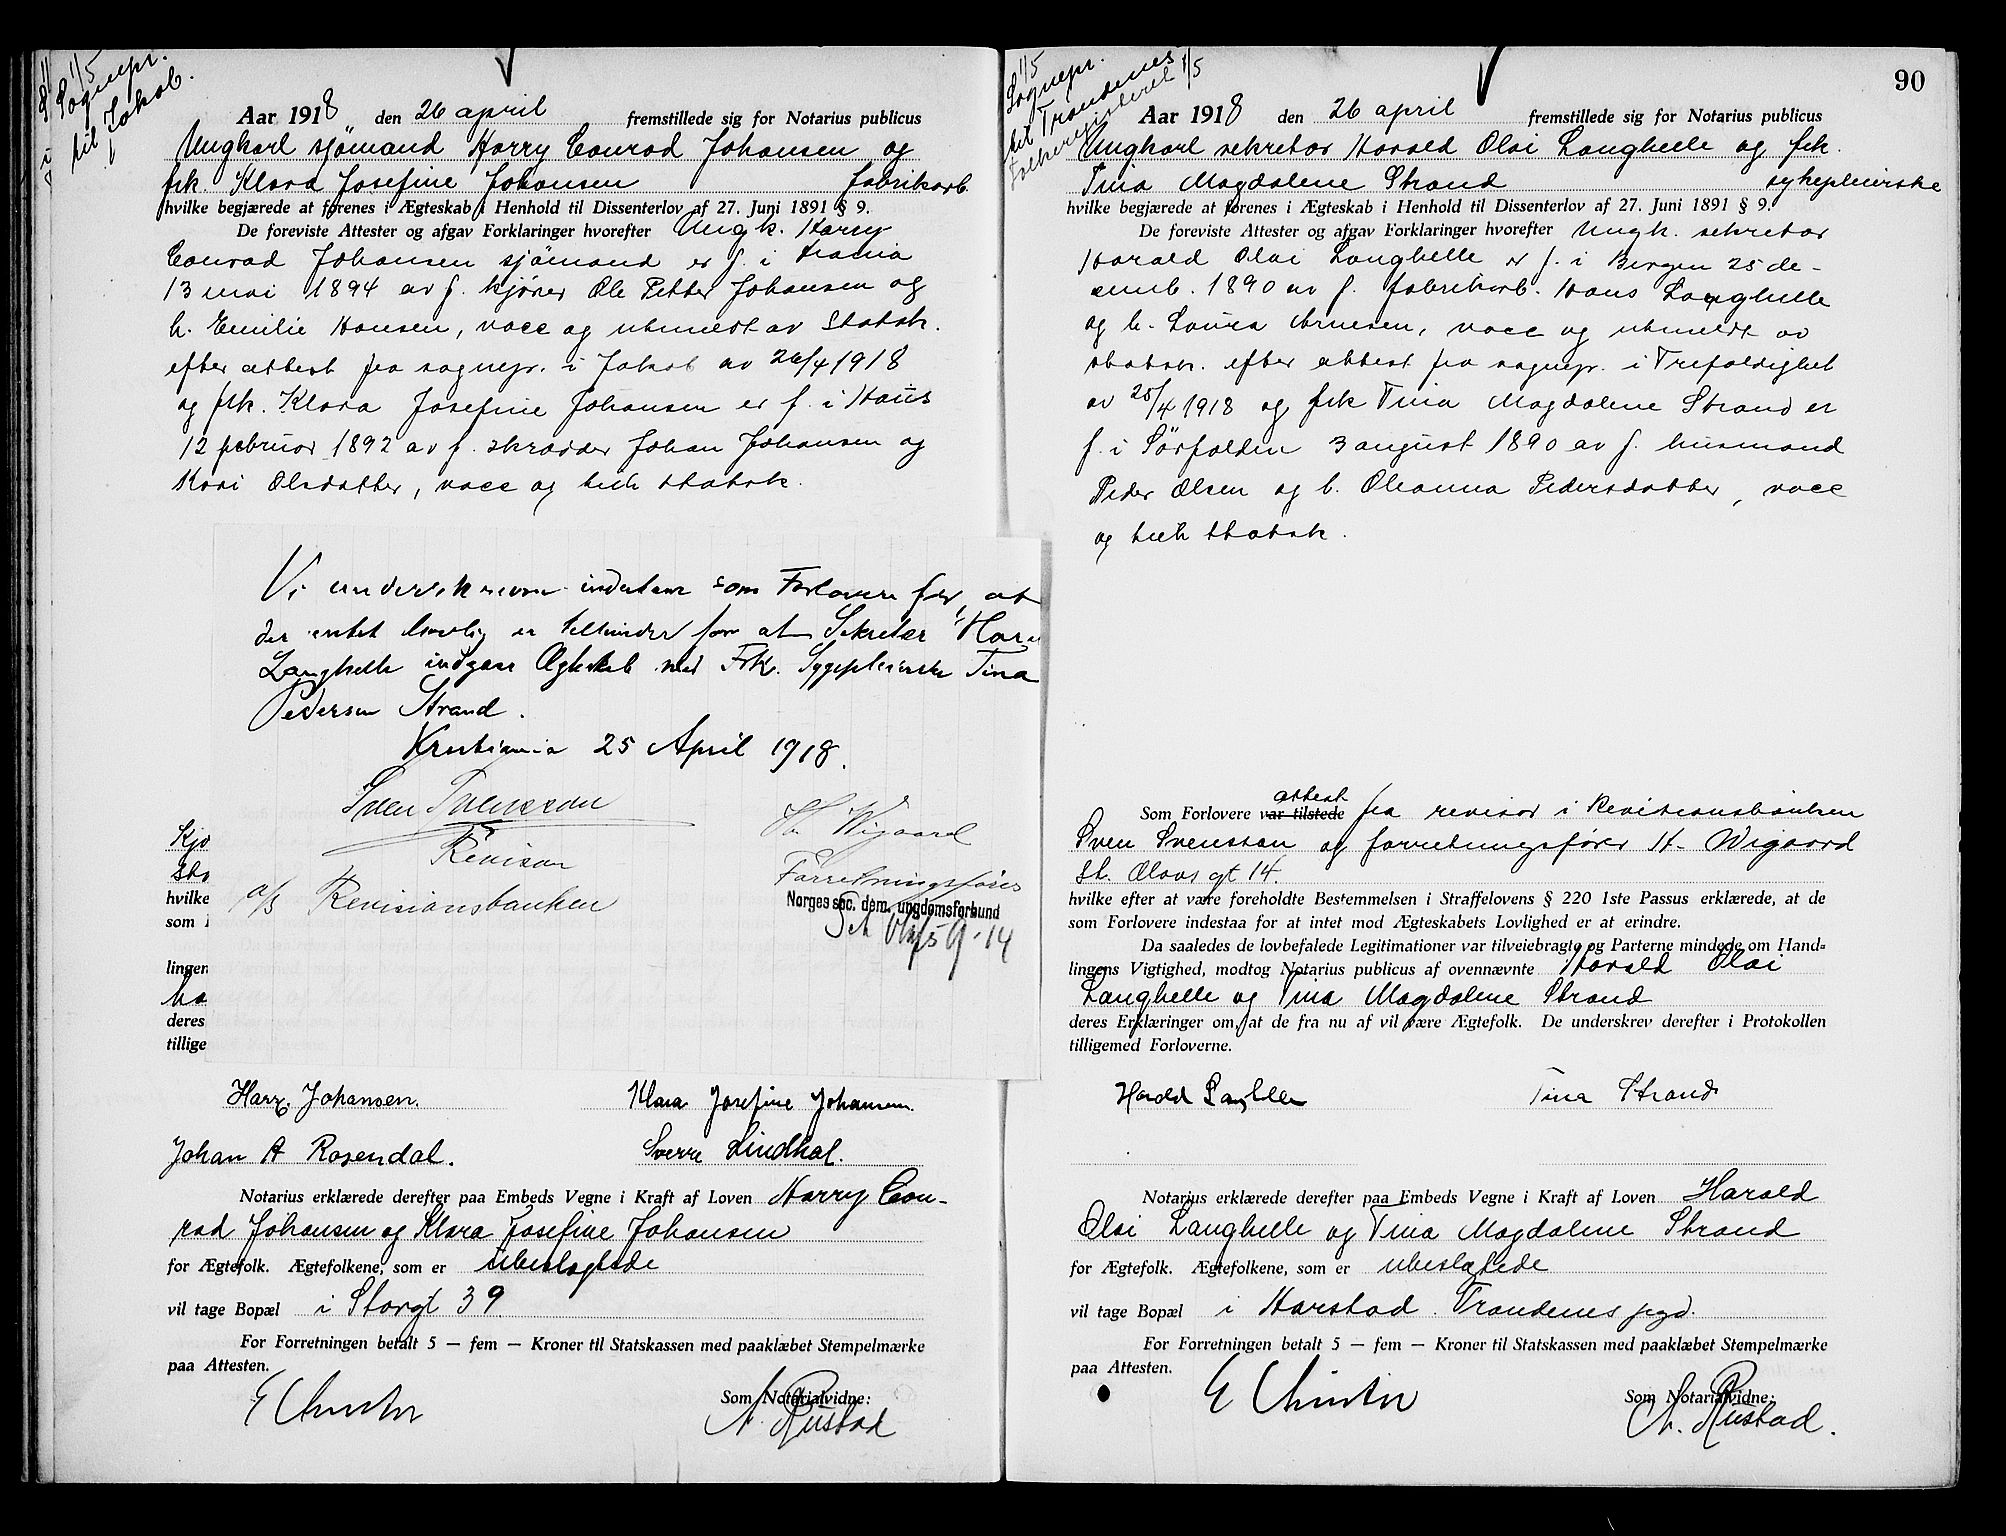 1/5
Sognepr.
til Jakob.
Aar 1918 den 26 april fremstillede sig for Notarius publicus
Ungkarl sjömand Harry Conrad Johansen og
frk. Klara Josefine Johansen fabrikarb.
hvilke begjærede at forenes i Ægteskab i Henhold til Dissenterlov af 27. Juni 1891 § 9.
De foreviste Attester og afgav Forklaringer hvorefter Ungk. Harry
Conrad Johansen sjömand er f. i
13 mai 1894 av f. kjörer Ole Petter Johansen og
h. Emilie Hansen, vacc og utmeldt av Statsk.
efter attest fra sognepr. i Jakob av 26/4 1918
og frk. Klara Josefine Johansen er f. i Haus
12 februar 1892 av f. skrædder Johan Johansen og
Kari Olsdatter, vacc og tilh statsk.
Vi undertegnede indestaar som Forlovere for, at
der intet lovlig er til hinder for at Sekretær Har
Langhelle indgaar Ægteskab med Frk. Sygepleierske Tina
Pedersen Strand.
Kristiania 25 April 1918.
Sven Svensson
Revisor
a/s Revisionsbanken
H. Wigaard
Forretningsfører
Norges soc. dem. ungdomsforbund
St. Olafs g. 14
Kjø
Sto
hvilke
som i
lingen
ha
deres
tillige
Harry Johansen. Klara Josefine Johansen.
Johan A Rosendal. Sverre Lindhal.
Notarius erklærede derefter paa Embeds Vegne i Kraft af Loven Harry Con-
rad Johansen og Klara Josefine Johansen
for Ægtefolk. Ægtefolkene, som er ubeslægtede
vil tage Bopæl i Storgt 39
For Forretningen betalt 5 — fem — Kroner til Statskassen med paaklæbet Stempelmærke
paa Attesten.
Som Notarialvidne:
N. Rustad
1/5
Sognepr.
til Trondenes
Folkeregisteret 1/5
90
Aar 1918 den 26 april fremstillede sig for Notarius publicus
Ungkarl sekretær Harald Olai Langhelle og frk.
Tina Magdalene Strand sykepleierske
hvilke begjærede at forenes i Ægteskab i Henhold til Dissenterlov af 27. Juni 1891 § 9.
De foreviste Attester og afgav Forklaringer hvorefter Ungk. sekretær
Harald Olai Langhelle er f. i Bergen 25 de-
cemb. 1890 av f. fabrikarb. Hans Langhelle
og h. Laura Arnesen, vacc og utmeldt av
statsk. efter attest fra sognepr. i Trefoldighet
av 25/4 1918 og frk Tina Magdalene Strand er
f. i Sörfolden 3 august 1890 av f. husmand
Peder Olsen og h. Oleanna Pedersdatter, vacc
og tilh statsk.
Som Forlovere var tilstede attest fra revisor i Revisionsbanken
Sven Svensson og forretningsförer H. Wigaard
St. Olavs gt 14.
hvilke efter at være foreholdte Bestemmelsen i Straffelovens § 220 1ste Passus erklærede, at de
som Forlovere indestaa for at intet mod Ægteskabets Lovlighed er at erindre.
Da saaledes de lovbefalede Legitimationer var tilveiebragte og Parterne mindede om Hand-
lingens Vigtighed, modtog Notarius publicus af ovennævnte Harald Olai
Langhelle og Tina Magdalene Strand
deres Erklæringer om, at de fra nu af vil være Ægtefolk. De underskrev derefter i Protokollen
tilligemed Forloverne.
Harald Langhelle Tina Strand
Notarius erklærede derefter paa Embeds Vegne i Kraft af Loven Harald
Olai Langhelle og Tina Magdalene Strand
for Ægtefolk. Ægtefolkene, som er ubeslægtede
vil tage Bopæl i Harstad Trondenes pgd.
For Forretningen betalt 5 — fem — Kroner til Statskassen med paaklæbet Stempelmærke
paa Attesten.
Som Notarialvidne:
N. Rustad.